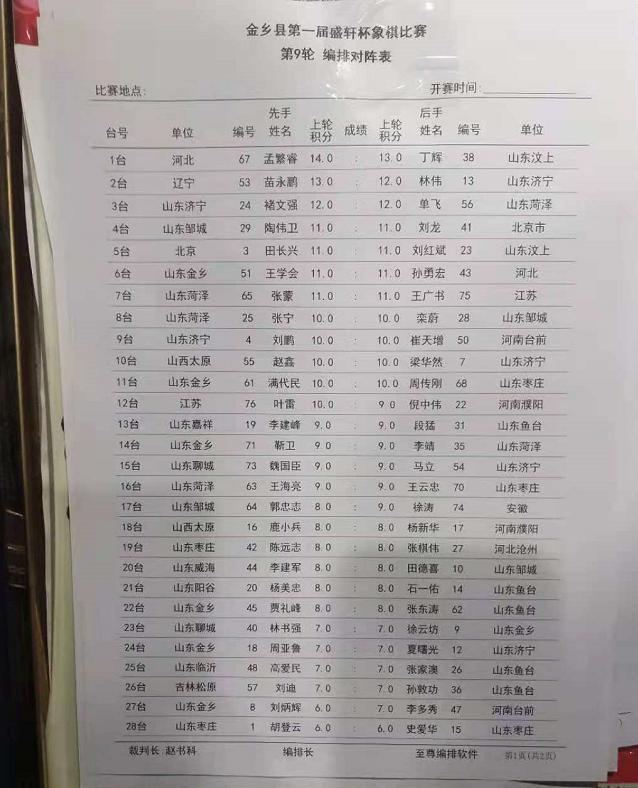 金乡县第一届盛轩杯象棋比赛
第9轮 编排对阵表
比赛地点: 开赛时间:
台号 单位 编号 先手姓名 上轮积分 成绩 上轮积分 后手姓名 编号 单位
1台 河北 67 孟繁睿 14.0 : 13.0 丁辉 38 山东汶上
2台 辽宁 53 苗永鹏 13.0 : 12.0 林伟 13 山东济宁
3台 山东济宁 24 褚文强 12.0 : 12.0 单飞 56 山东菏泽
4台 山东邹城 29 陶伟卫 11.0 : 11.0 刘龙 41 北京市
5台 北京 3 田长兴 11.0 : 11.0 刘红斌 23 山东汶上
6台 山东金乡 51 王学会 11.0 : 11.0 孙勇宏 43 河北
7台 山东菏泽 65 张蒙 11.0 : 11.0 王广书 75 江苏
8台 山东菏泽 25 张宁 10.0 : 10.0 栾蔚 28 山东邹城
9台 山东济宁 4 刘鹏 10.0 : 10.0 崔天增 50 河南台前
10台 山西太原 55 赵鑫 10.0 : 10.0 梁华然 7 山东济宁
11台 山东金乡 61 满代民 10.0 : 10.0 周传刚 68 山东枣庄
12台 江苏 76 叶雷 10.0 : 9.0 倪中伟 22 河南濮阳
13台 山东嘉祥 19 李建峰 9.0 : 9.0 段猛 31 山东鱼台
14台 山东金乡 71 靳卫 9.0 : 9.0 李靖 35 山东菏泽
15台 山东聊城 73 魏国臣 9.0 : 9.0 马立 54 山东济宁
16台 山东菏泽 63 王海亮 9.0 : 9.0 王云忠 70 山东枣庄
17台 山东邹城 64 郭忠志 8.0 : 9.0 徐涛 74 安徽
18台 山西太原 16 鹿小兵 8.0 : 8.0 杨新华 17 河南濮阳
19台 山东枣庄 42 陈远志 8.0 : 8.0 张棋伟 27 河北沧州
20台 山东威海 44 李建军 8.0 : 8.0 田德喜 10 山东邹城
21台 山东阳谷 20 杨美忠 8.0 : 8.0 石一佑 14 山东鱼台
22台 山东金乡 45 贾礼峰 8.0 : 8.0 张东涛 62 山东鱼台
23台 山东聊城 40 林书强 7.0 : 7.0 徐云坊 9 山东金乡
24台 山东金乡 18 周亚鲁 7.0 : 7.0 夏曙光 12 山东济宁
25台 山东临沂 48 高爱民 7.0 : 7.0 张家澳 26 山东鱼台
26台 吉林松原 57 刘迪 7.0 : 7.0 孙敦功 36 山东鱼台
27台 山东金乡 8 刘炳辉 6.0 : 7.0 李多秀 47 河南台前
28台 山东枣庄 1 胡登云 6.0 : 6.0 史爱华 15 山东枣庄
裁判长 赵书科 编排长 至尊编排软件 第1页(共2页)